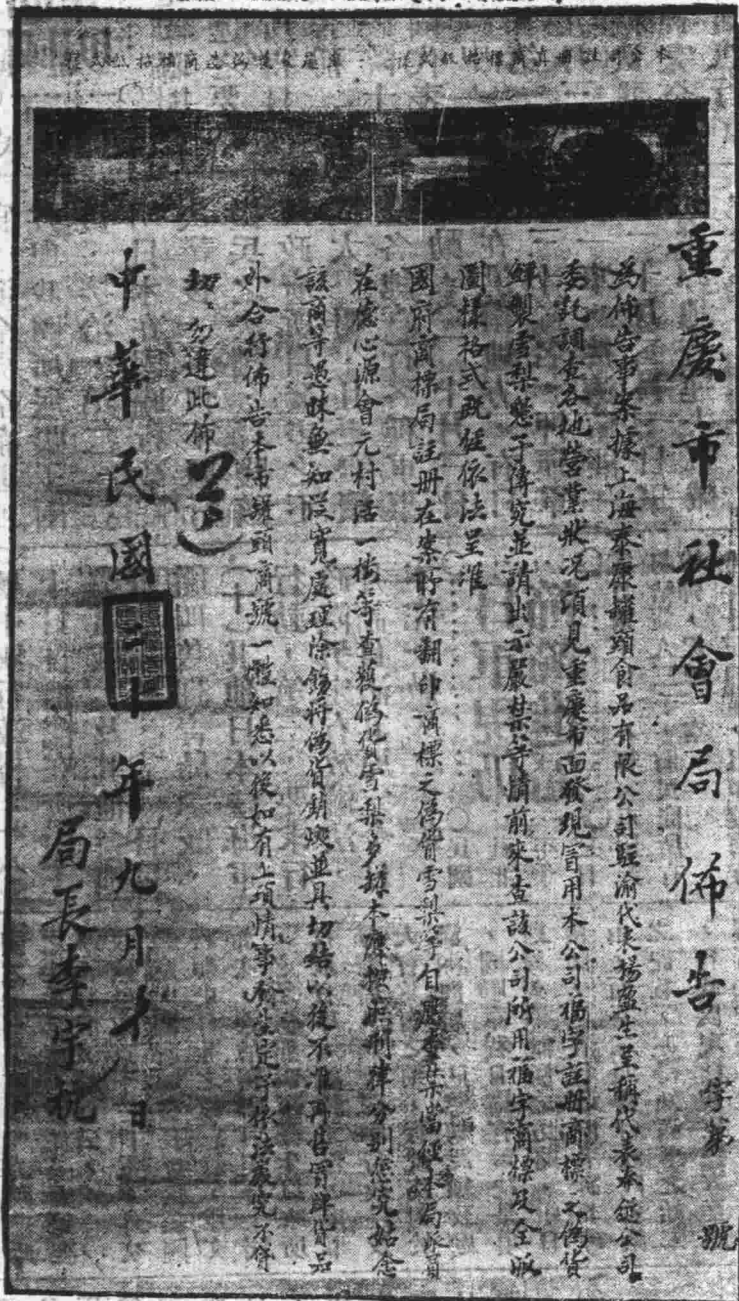 重慶市社會局佈告 字第 號
為佈告事案據上海泰康罐頭食品有限公司駐渝代表楊盈生呈稱代表本公司
委託調查各地營業狀況頃見重慶市面發現冒用本公司福字註冊商標之偽貨
鮮製雪梨懇予傳究並請出示嚴禁等情前來查該公司所用福字商標及全版
圖樣格式既經依法呈准
國府商標局註册在案將有翻印商標之偽質雪梨等自應查禁當經本局派員
在德心源會元村活一樓等查獲偽貨雪梨多罐本應按照刑律分別懲究姑念
該商等愚昧無知從寬處理除飭將偽貨銷燬並具切結以後不准再售冒牌貨品
外合行佈告本市罐頭商號一體知悉以後如有上項情事發生定予依法嚴究不貸
切勿違此佈
中華民國二十年九月十 日
局長李宇杭